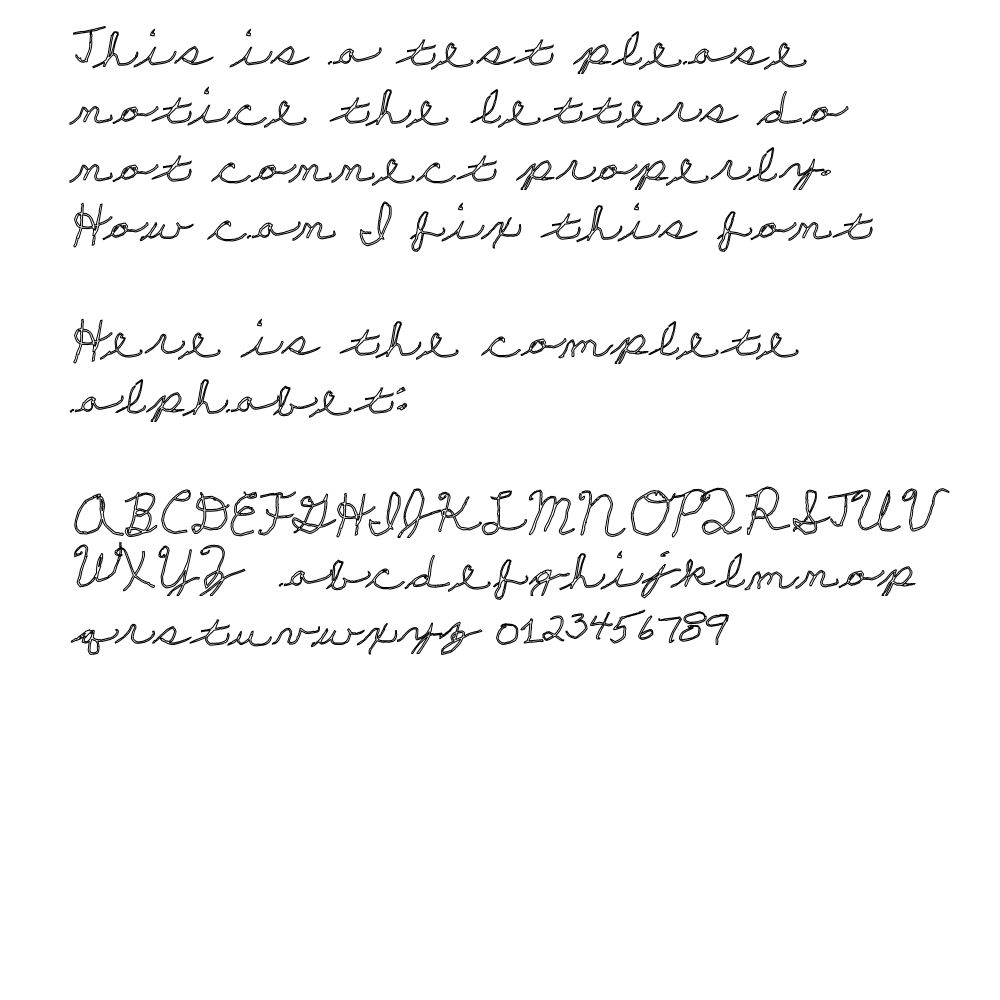 This is a test please
notice the letters do
not connect properly.
How can I fix this font
Here is the complete
alphabet:
ABCDEFGHIJKLMNOPQRSTUV
WXYZ abcdefghijklmnop
qrstuvwxyz 0123456789